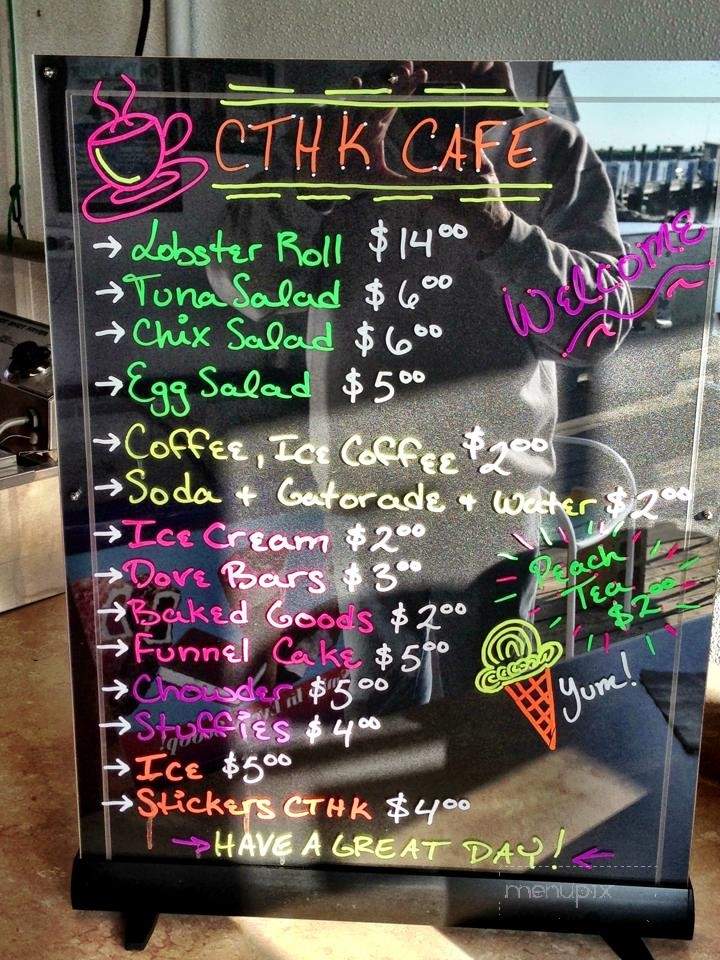 CTHK CAFE
→ Lobster Roll $14⁰⁰
→ Tuna Salad $6⁰⁰
→ Chix Salad $6⁰⁰
→ Egg Salad $5⁰⁰
WELCOME
→ Coffee, Ice Coffee $2⁰⁰
→ Soda + Gatorade + Water $2⁰⁰
→ Ice Cream $2⁰⁰
→ Dove Bars $3⁰⁰
Peach
Tea
$2⁰⁰
→ Baked Goods $2⁰⁰
→ Funnel Cake $5⁰⁰
→ Chowder $5⁰⁰
Yum!
→ Stuffies $4⁰⁰
→ Ice $5⁰⁰
→ Stickers CTHK $4⁰⁰
→ HAVE A GREAT DAY! ←
menupix